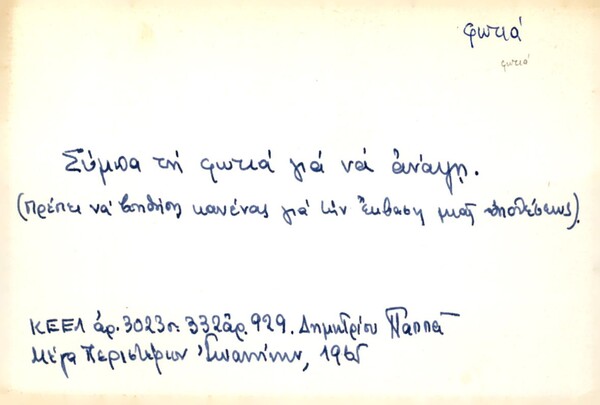 φωτιά
φωτιά
Σύμπα τή φωτιά γιά νά ἀνάψῃ.
(Πρέπει νά βοηθήσῃ κανένας γιά τήν ἔκβαση μιᾶς ὑποθέσεως).
ΚΕΕΛ ἀρ. 3023 σ. 332 ἀρ. 929. Δημητρίου Παππᾶ
Μέγα Περιστέριον Ἰωαννίνων, 1965